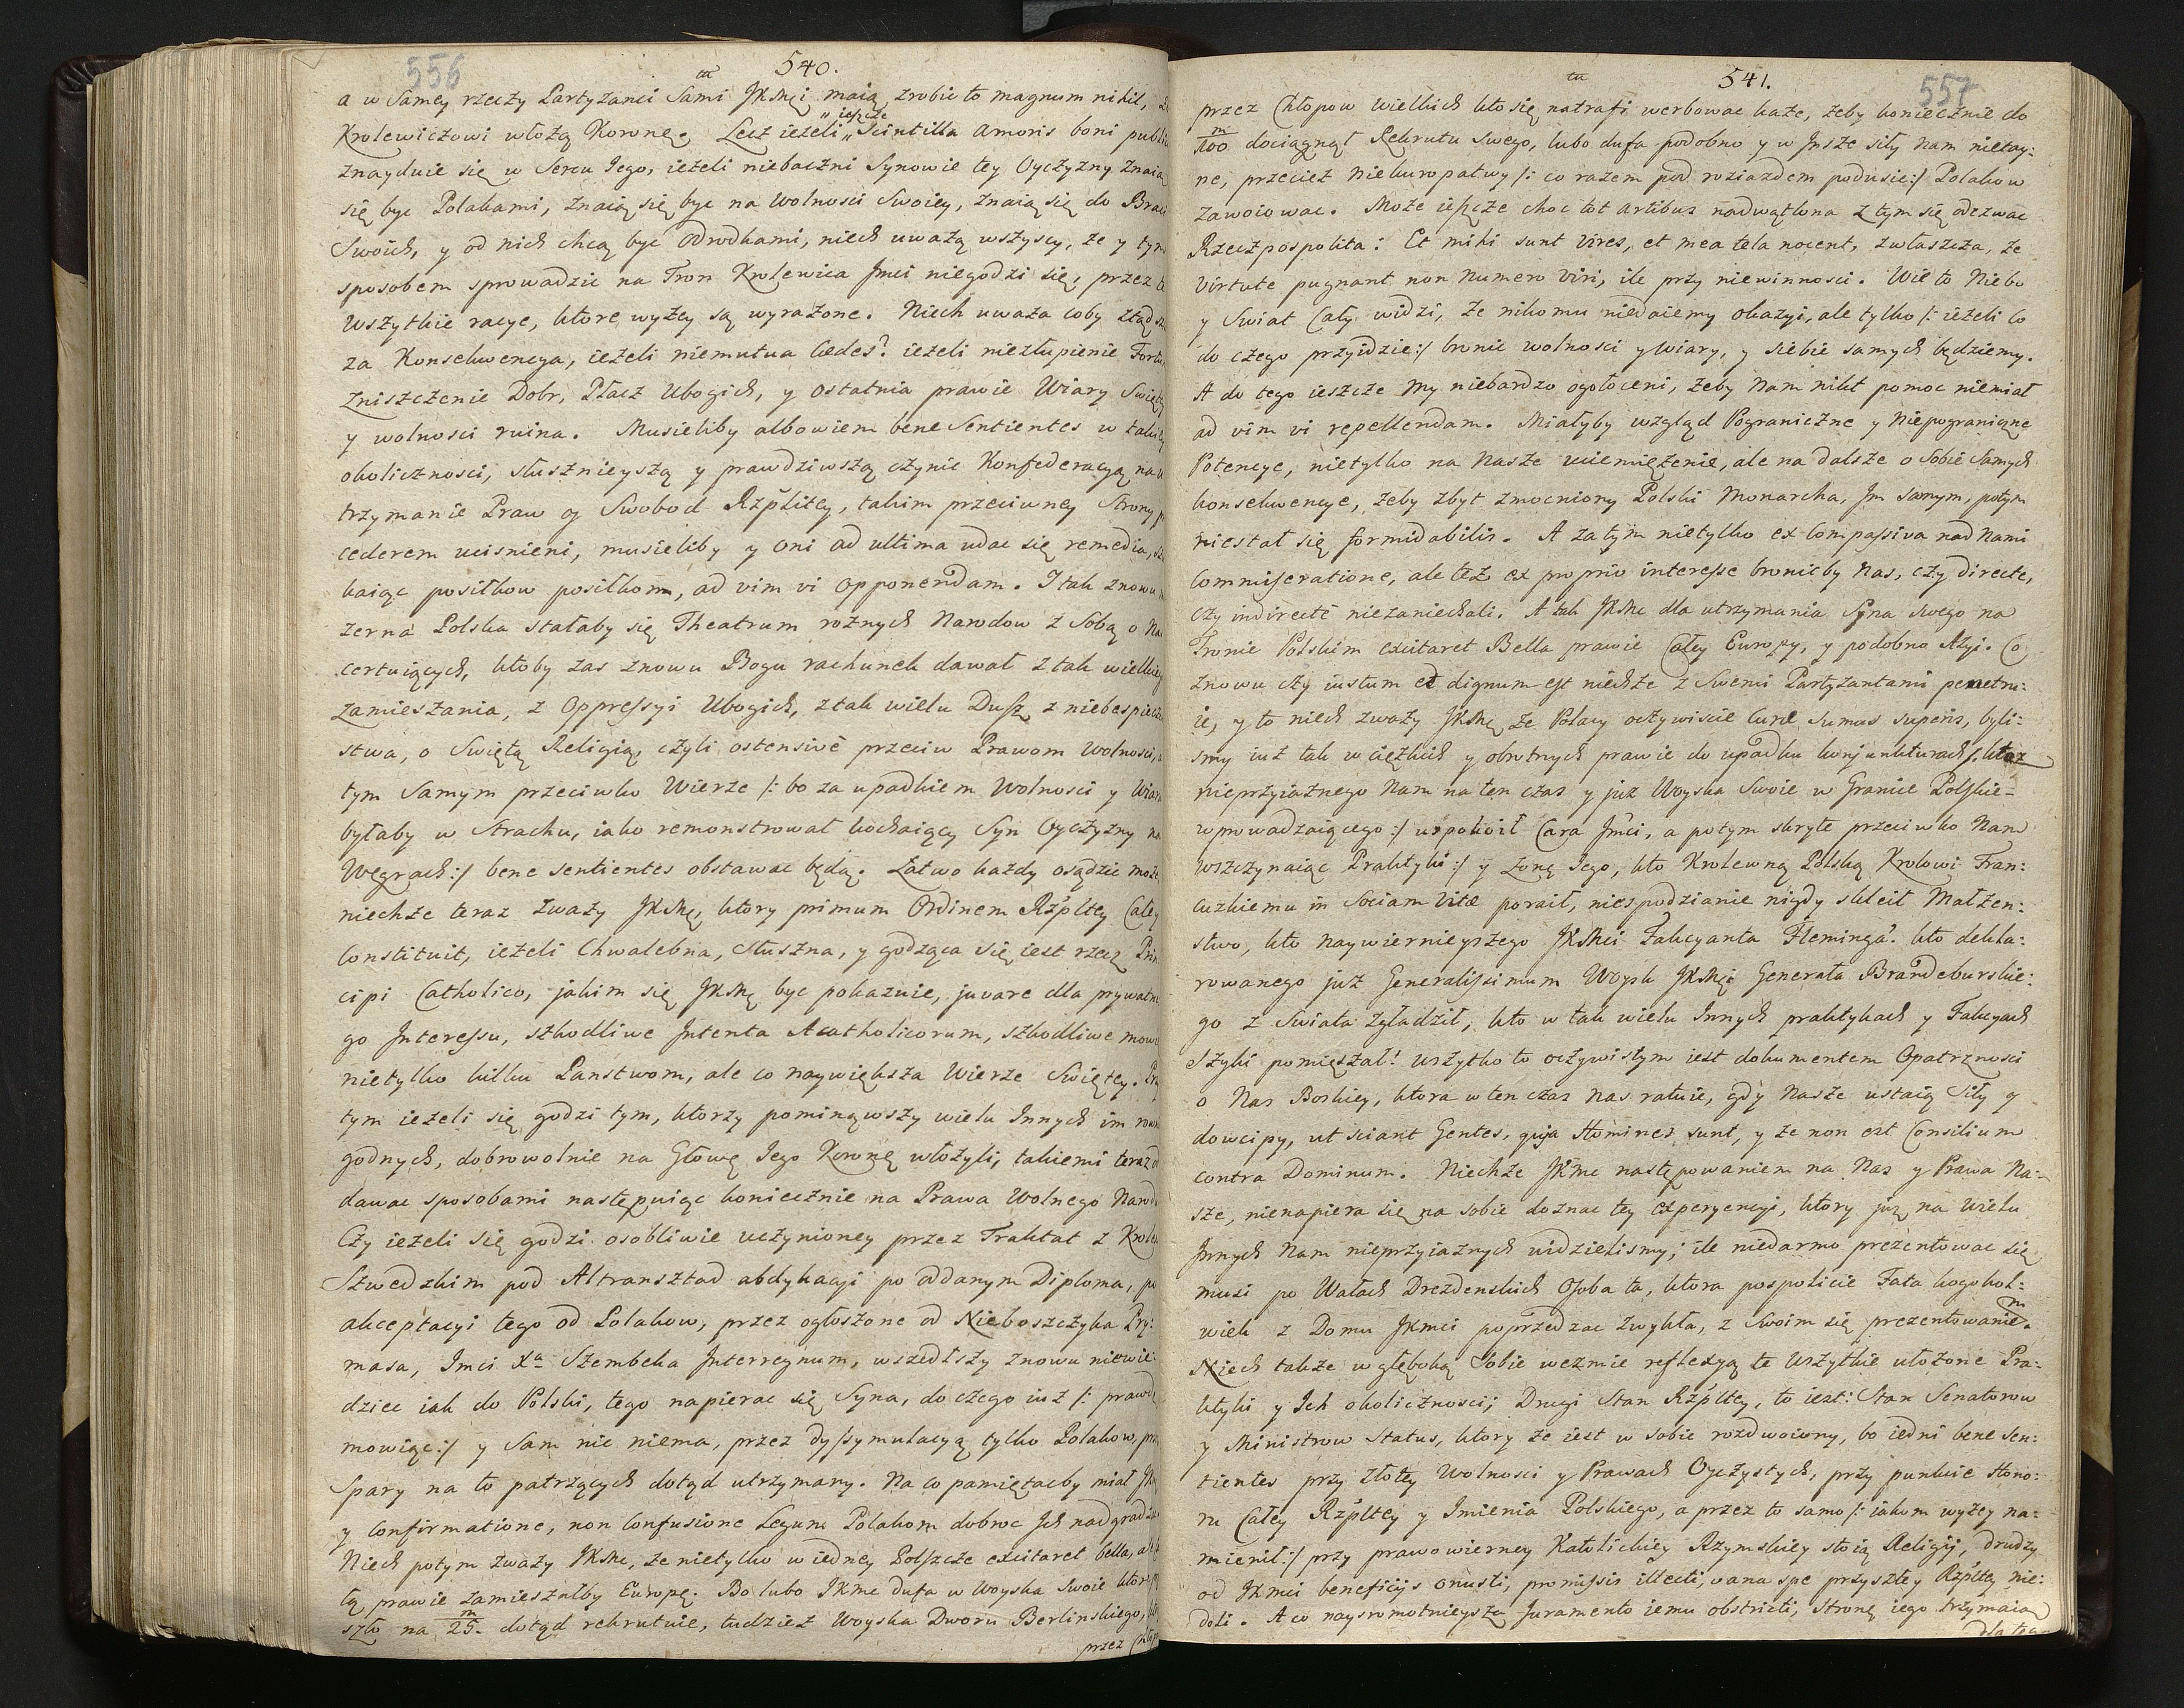 556
540.
a w Samey rzeczy Partyzanci Sami JKMci maią zrobic to magnum nihil,
Krolewiczowi włożą Koronę. Lecz ieżeli „ ieszcze „ Scintilla amoris boni publi
znayduie się w Sercu Iego, ieżeli niebaczni Synowie tey Oyczyzny znaią
się byc Polakami, znaią się byc na wolnosci Swoiey, znaią się do Braci
Swoich, y od nich chcą być Odrodkami, niech uważą wszyscy, że y tym
sposobem sprowadzic na Tron Krolewica Jmci niegodzi się, przez te
wszytkie racye, ktore wyżey są wyrażone. Niech uważa coby ztąd
za Konsekwencya, ieżeli niemutua Cædes? ieżeli niezłupienie Fort
zniszczenie Dobr, Płacz Ubogich, y ostatnia prawie Wiary Swięty
y wolnosci ruina. Musieliby albowiem bene Sentientes w takiey
okolicznosci, słusznieyszą y prawdziwszą czynic Konfederacyą na u
trzymanie Praw y Swobod Rzplitey, takim przeciwney Strony p
cederem ucisnieni, musieliby y oni ad ultima udac się remedia,
kaiąc posiłkow posiłkom, ad vim vi opponendam. I tak znowu
zerna Polska stałaby się Theatrum rożnych Narodow z Sobą o Na
certuiących, ktoby zas znowu Bogu rachunek dawał z tak wielkiey
zamieszania, z Oppressyi Ubogich, z tak wielu Dusz, z niebespieczeń
stwa, o Swiętą Religią, czyli ostensivè przeciw Prawom wolnosci, a
tym Samym przeciwko Wierze /: bo za upadkiem Wolnosci y Wiara
byłaby w Strachu, iako remonstrował kochaiący Syn Oyczyzny na
Węgrach :/ bene sentientes obstawac będą. Łatwo każdy osądzic może
niechże teraz zważy JKMć, ktory primum Ordinem Rzpltey Całey
Constituit, ieżeli Chwalebna, słuszna, y godząca się iest rzecz Prin
cipi Catholico, jakim się JKMć byc pokazuie, juvare dla prywatne
go Interessu, szkodliwe Intenta Acatholicorum, szkodliwe mow
nietylko kilku Panstwom, ale co naywiększa Wierze Swiętey. Prz
tym ieżeli się godzi tym, ktorzy pominąwszy wielu Innych im row
godnych, dobrowolnie na Głowę Iego Koronę włożyli, takiemi teraz o
dawac sposobami następuiąc koniecznie na Prawa Wolnego Narodu
Czy ieżeli się godzi osobliwie uczynioney przez Traktat z Krole
Szwedzkim pod Altransztad abdykacyi po oddanym Diploma, po
akceptacyi tego od Polakow, przez ogłoszone od Nieboszczyka Pry:
masa, Imci Xa Szembeka Interregnum, wszedłszy znowu niewie
dziec iak do Polski, tego napierac się Syna, do czego iuż /: prawdę
mowiąc :/ y Sam nic niema, przez dyssymulacyą tylko Polakow, prz
Spary na to patrzących dotąd utrzymany. Na co pamiętacby miał JK
y Confirmatione, non Confusione Legum Polakom dobroc Ich nadgradz
Niech potym zważy JKMc, że nietylko w iedney Polszcze excitaret bella, ale
łą prawie zamieszałby Europę. Bo lubo IKMc dufa w Woyska Swoie ktore
szło na 25m dotąd rekrutuie, tudzież Woyska Dworu Berlinskiego,
przez Chłop
541.
557
przez Chłopow wielkich kto się natrafi werbowac każe, żeby koniecznie do
100m dociągnął Rekrutu Swego, lubo dufa podobno y w Insze siły nam nietay:
ne, przecież nie kuropatwy /: co razem pod roziazdem podusic :/ Polakow
zawoiowac. Może ieszcze choc tot artibus nadwątlona z tym się odezwac
Rzeczpospolita: Et mihi sunt vires, et mea tela nocent, zwłaszcza, że
virtute pugnant non Numero viri, ile przy niewinnosci. Wie to Niebo
y Swiat Cały widzi, że nikomu niedaiemy okazyi, ale tylko /: ieżeli co
do czego przyidzie :/ bronic wolnosci y Wiary, y siebie samych będziemy.
A do tego ieszcze My niebardzo ogołoceni, żeby Nam nikt pomoc niemiał
ad vim vi repellendam. Miałyby wzgląd Pograniczne y Niepograniczne
Potencye, nietylko na Nasze uciemiężenie, ale na dalsze o Sobie Samych
konsekwencye, żeby zbyt zmocniony Polski Monarcha, Im samym, potym
niestał się formidabilis. A zatym nietylko ex Compassiva nad Nami
Commiseratione, ale też ex proprio interesse bronicby Nas, czy directe,
czy indirectè niezaniechali. A tak JKMc dla utrzymania Syna swego na
Tronie Polskim excitaret Bella prawie Całey Europy, y podobno Azyi. Co
znowu czy iustum et dignum est niechże z Swemi Partyzantami penetru:
ie, y to niech zważy JKMć że Polacy oczywiscie Curæ Sumus superis, byli:
smy iuż tak w ciężkich y obrotnych prawie do upadku konjunkturach, ktoż
nieprzyiaznego Nam na ten czas y już Woyska Swoie w Granice Polskie
wprowadzaiącego :/ uspokoił Cara Jmci, a potym skryte przeciwko Nam
wszczynaiąc Praktyki :/ y żonę Iego, kto Krolewną Polską Krolowi Fran:
cuzkiemu in Sociam vitæ poraił, niespodzianie nigdy skleił Małżen:
stwo, kto naywiernieyszego JKMci Fakcyanta Fleminga. kto dekla:
rowanego już Generalissimum Woysk JKMci Generała Brandeburskie:
go z Swiata zgładził, kto w tak wielu Innych praktykach y Fakcyach
Szyki pomięszał! wszytko to oczywistym iest dokumentem Opatrznosci
o Nas Boskiey, ktora w ten czas Nas ratuie, gdy Nasze ustaią Siły y
dowcipy, ut sciant Gentes, quja Homines sunt, y że non est Consilium
contra Dominum. Niechże JKMc następowaniem na Nas y Prawa Na-
sze, nienapiera się na sobie doznac tey experyencyi, ktory już na wielu
Innych Nam nieprzyiaznych widzielismy; ile niedarmo prezentowac się
musi po Wałach Drezdenskich Osoba ta, ktora pospolicie Fata kogokol:
wiek z Domu JKMci poprzedzac zwykła, z Swoim się prezentowaniem.
Niech także w głęboką Sobie wezmie reflexyą te wszytkie ułożone Pra:
ktyki y Ich okolicznosci; Drugi Stan Rzpltey, to iest: Stan Senatorow
y Ministrow Status, ktory że iest w sobie rozdwoiony, bo iedni bene Sen:
tientes przy złotey Wolnosci y Prawach Oyczystych, przy punkcie Hono:
ru Całey Rzpltey y Imienia Polskiego, a przez to samo /: iakom wyżey na:
mienił :/ przy prawowierney Katolickiey Rzymskiey stoią Religij, drudzy
od JKMci beneficijs onusti, promissis illecti, vana spe przyszłey Rzpltey nie:
doli. A co naysromotnieysza Juramento iemu obstricti, stronę iego trzymaią
dla teg